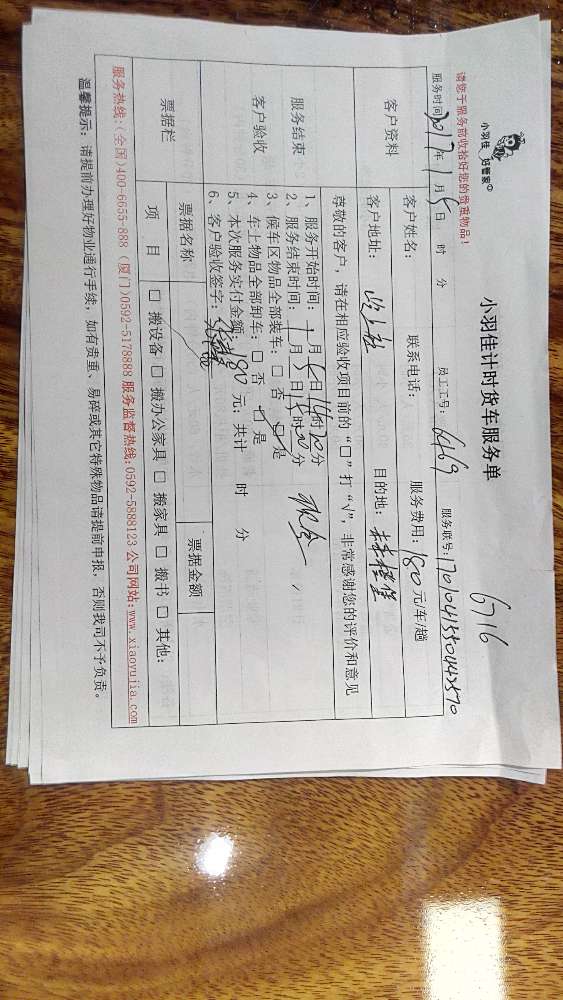 小羽佳 好管家
小羽佳计时货车服务单
6716
请您于服务前收拾好您的贵重物品!
服务时间:2017年1月5日 时 分 员工工号:6469 服务联号:
客户资料
客户姓名: 联系电话: 服务费用:180元/车/趟
客户地址: 目的地:
尊敬的客户,请在相应验收项目前的“□”打“√”,非常感谢您的评价和意见
服务结束
客户验收
1、服务开始时间:1月5日14时20分
2、服务结束时间:1月5日15时20分 现金
3、候车区物品全部装车:□ 否 ☑ 是
4、车上物品全部卸车:□ 否 ☑ 是
5、本次服务实付金额:180元;共计 时 分
6、客户验收签字:
票据栏
票据名称 票据金额
项 目 □ 搬设备 □ 搬办公家具 □ 搬家具 □ 搬书 □ 其他:
服务热线:(全国)400-6655-888 (厦门)0592-5178888 服务监督热线:0592-5888123 公司网站:www.xiaoyujia.com
温馨提示:请提前办理好物业通行手续,如有贵重、易碎或其它特殊物品请提前申报,否则我司不予负责。